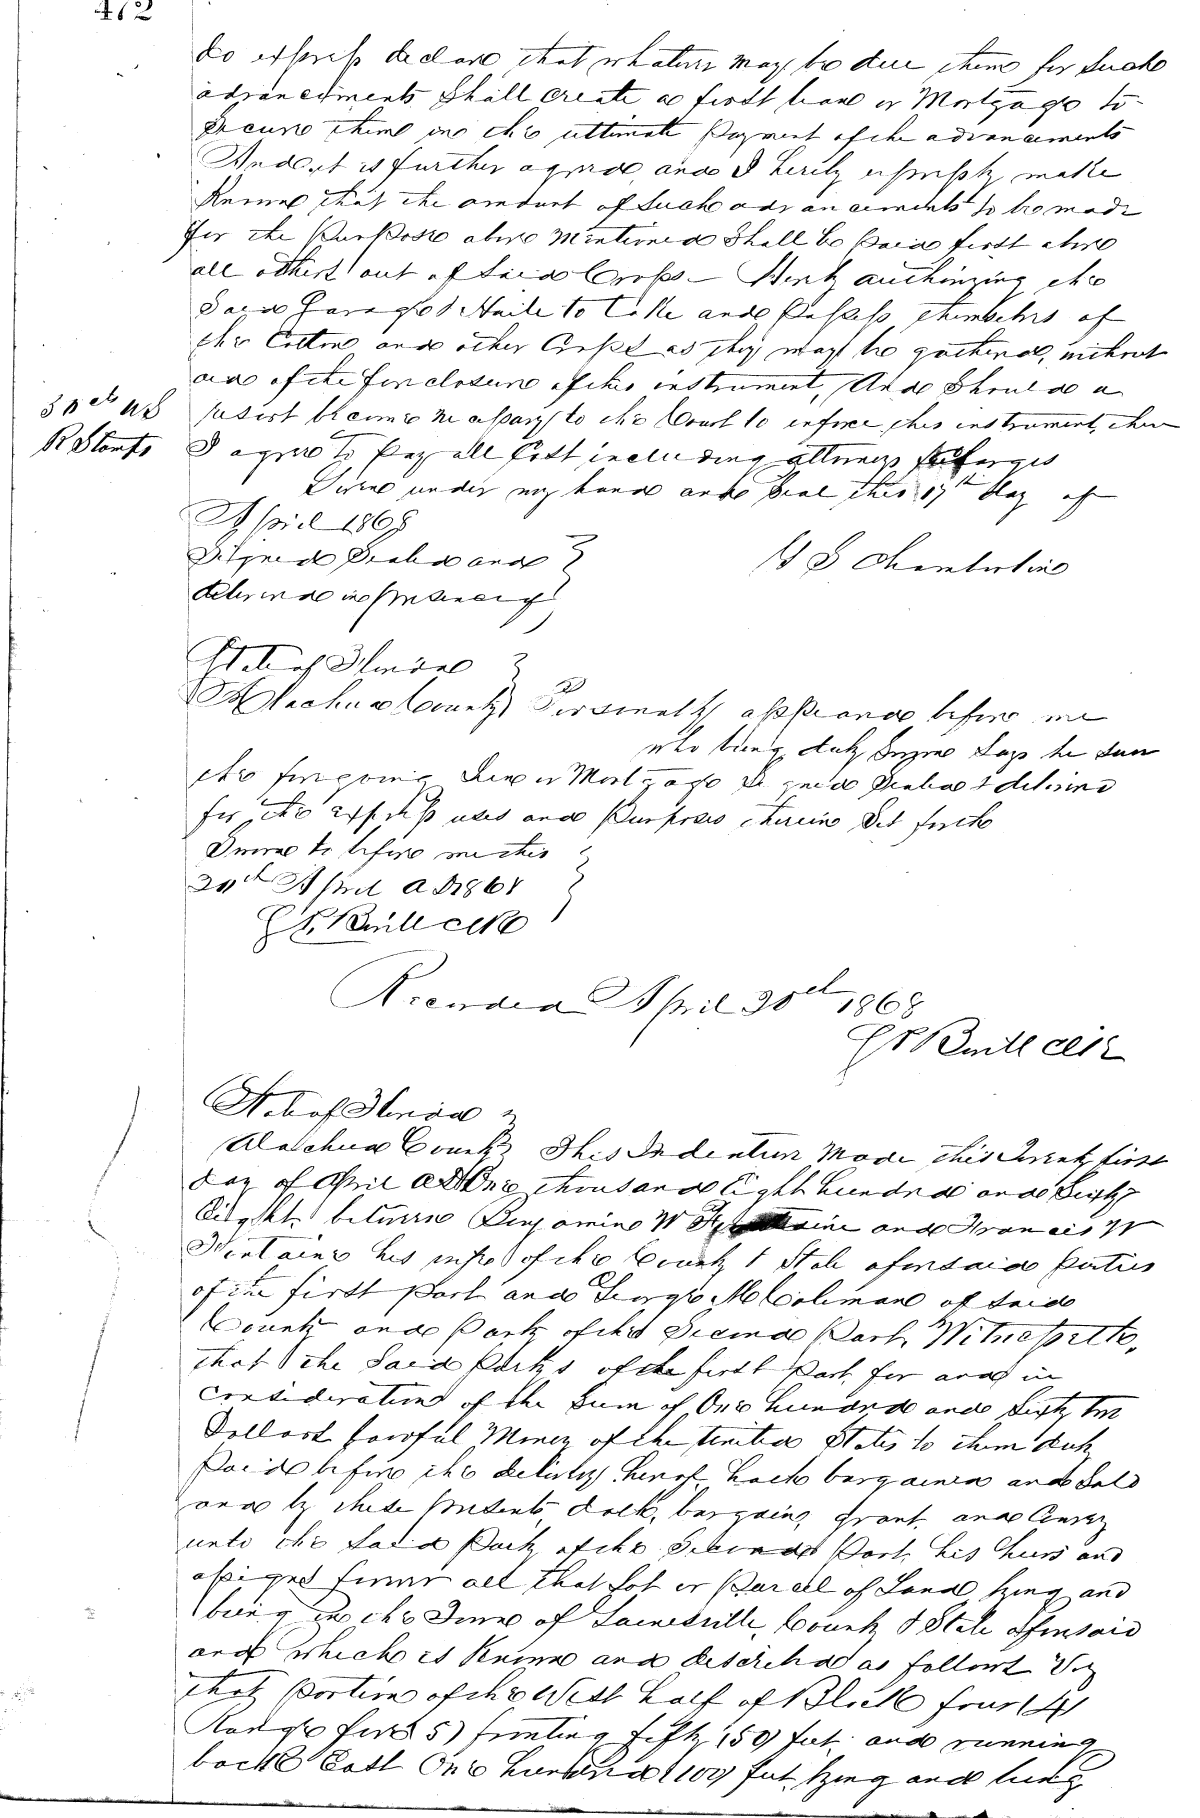 472
do express declare that whatever may be due them for such
advancements Shall Create a first lean or Mortgage to
secure them in the ultimate payment of the advancements
And it is further agreed and I hereby expressly make
Known that the amount of Such advancements to be made
for the Purpose above Mentioned Shall be paid first above
all others out of Said Crops - Hereby authorizing the
Said Savage & Haile to take and Possess themselves of
the Cotton and other Crops as they may be gathered, without
aid of the foreclosure of this instrument, And Should a
resort become necessary to the Court to enforce this instrument, then
50 cts US
R Stamps
I agree to Pay all Cost including attorneys charges
Given under my hand and Seal this 17th day of
April 1868
Signed Sealed and
delivered in presence of
S Chamberline
State of Florida
Alachua County Personally appeared before me
who being duly Sworn Says he saw
the foregoing Deed or Mortgage Signed Sealed & delivered
for the express uses and Purposes therein Set forth
Sworn to before me this
April AD 1868
Clk
Recorded April 30th 1868
Clk
State of Florida
Alachua County This Indenture Made this Twenty first
day of April AD One thousand Eight hundred and Sixty
Eight between Benjamine W Fontaine and Francis W
Fontaine his wife of the County & State aforesaid Parties
of the first Part and George M Coleman of Said
County and Party of the Second Part, Witnesseth,
that the Said Partys of the first Part for and in
Consideration of the Sum of One hundred and Sixty two
Dollars lawful Money of the United States to them duly
Paid before the delivery hereof hath bargained and Sold
and by these presents doth, bargain, grant and Convey
unto the Said Party of the Second Part, his heirs and
assigns forever all that Lot or Parcel of Land, lying and
being in the Town of Gainesville, County & State aforesaid
and which is Known and described as follows Viz
that Portion of the West half of Block four (4)
Range five 5) fronting fifty (50) feet, and running
back East One hundred (100) feet, lying and being